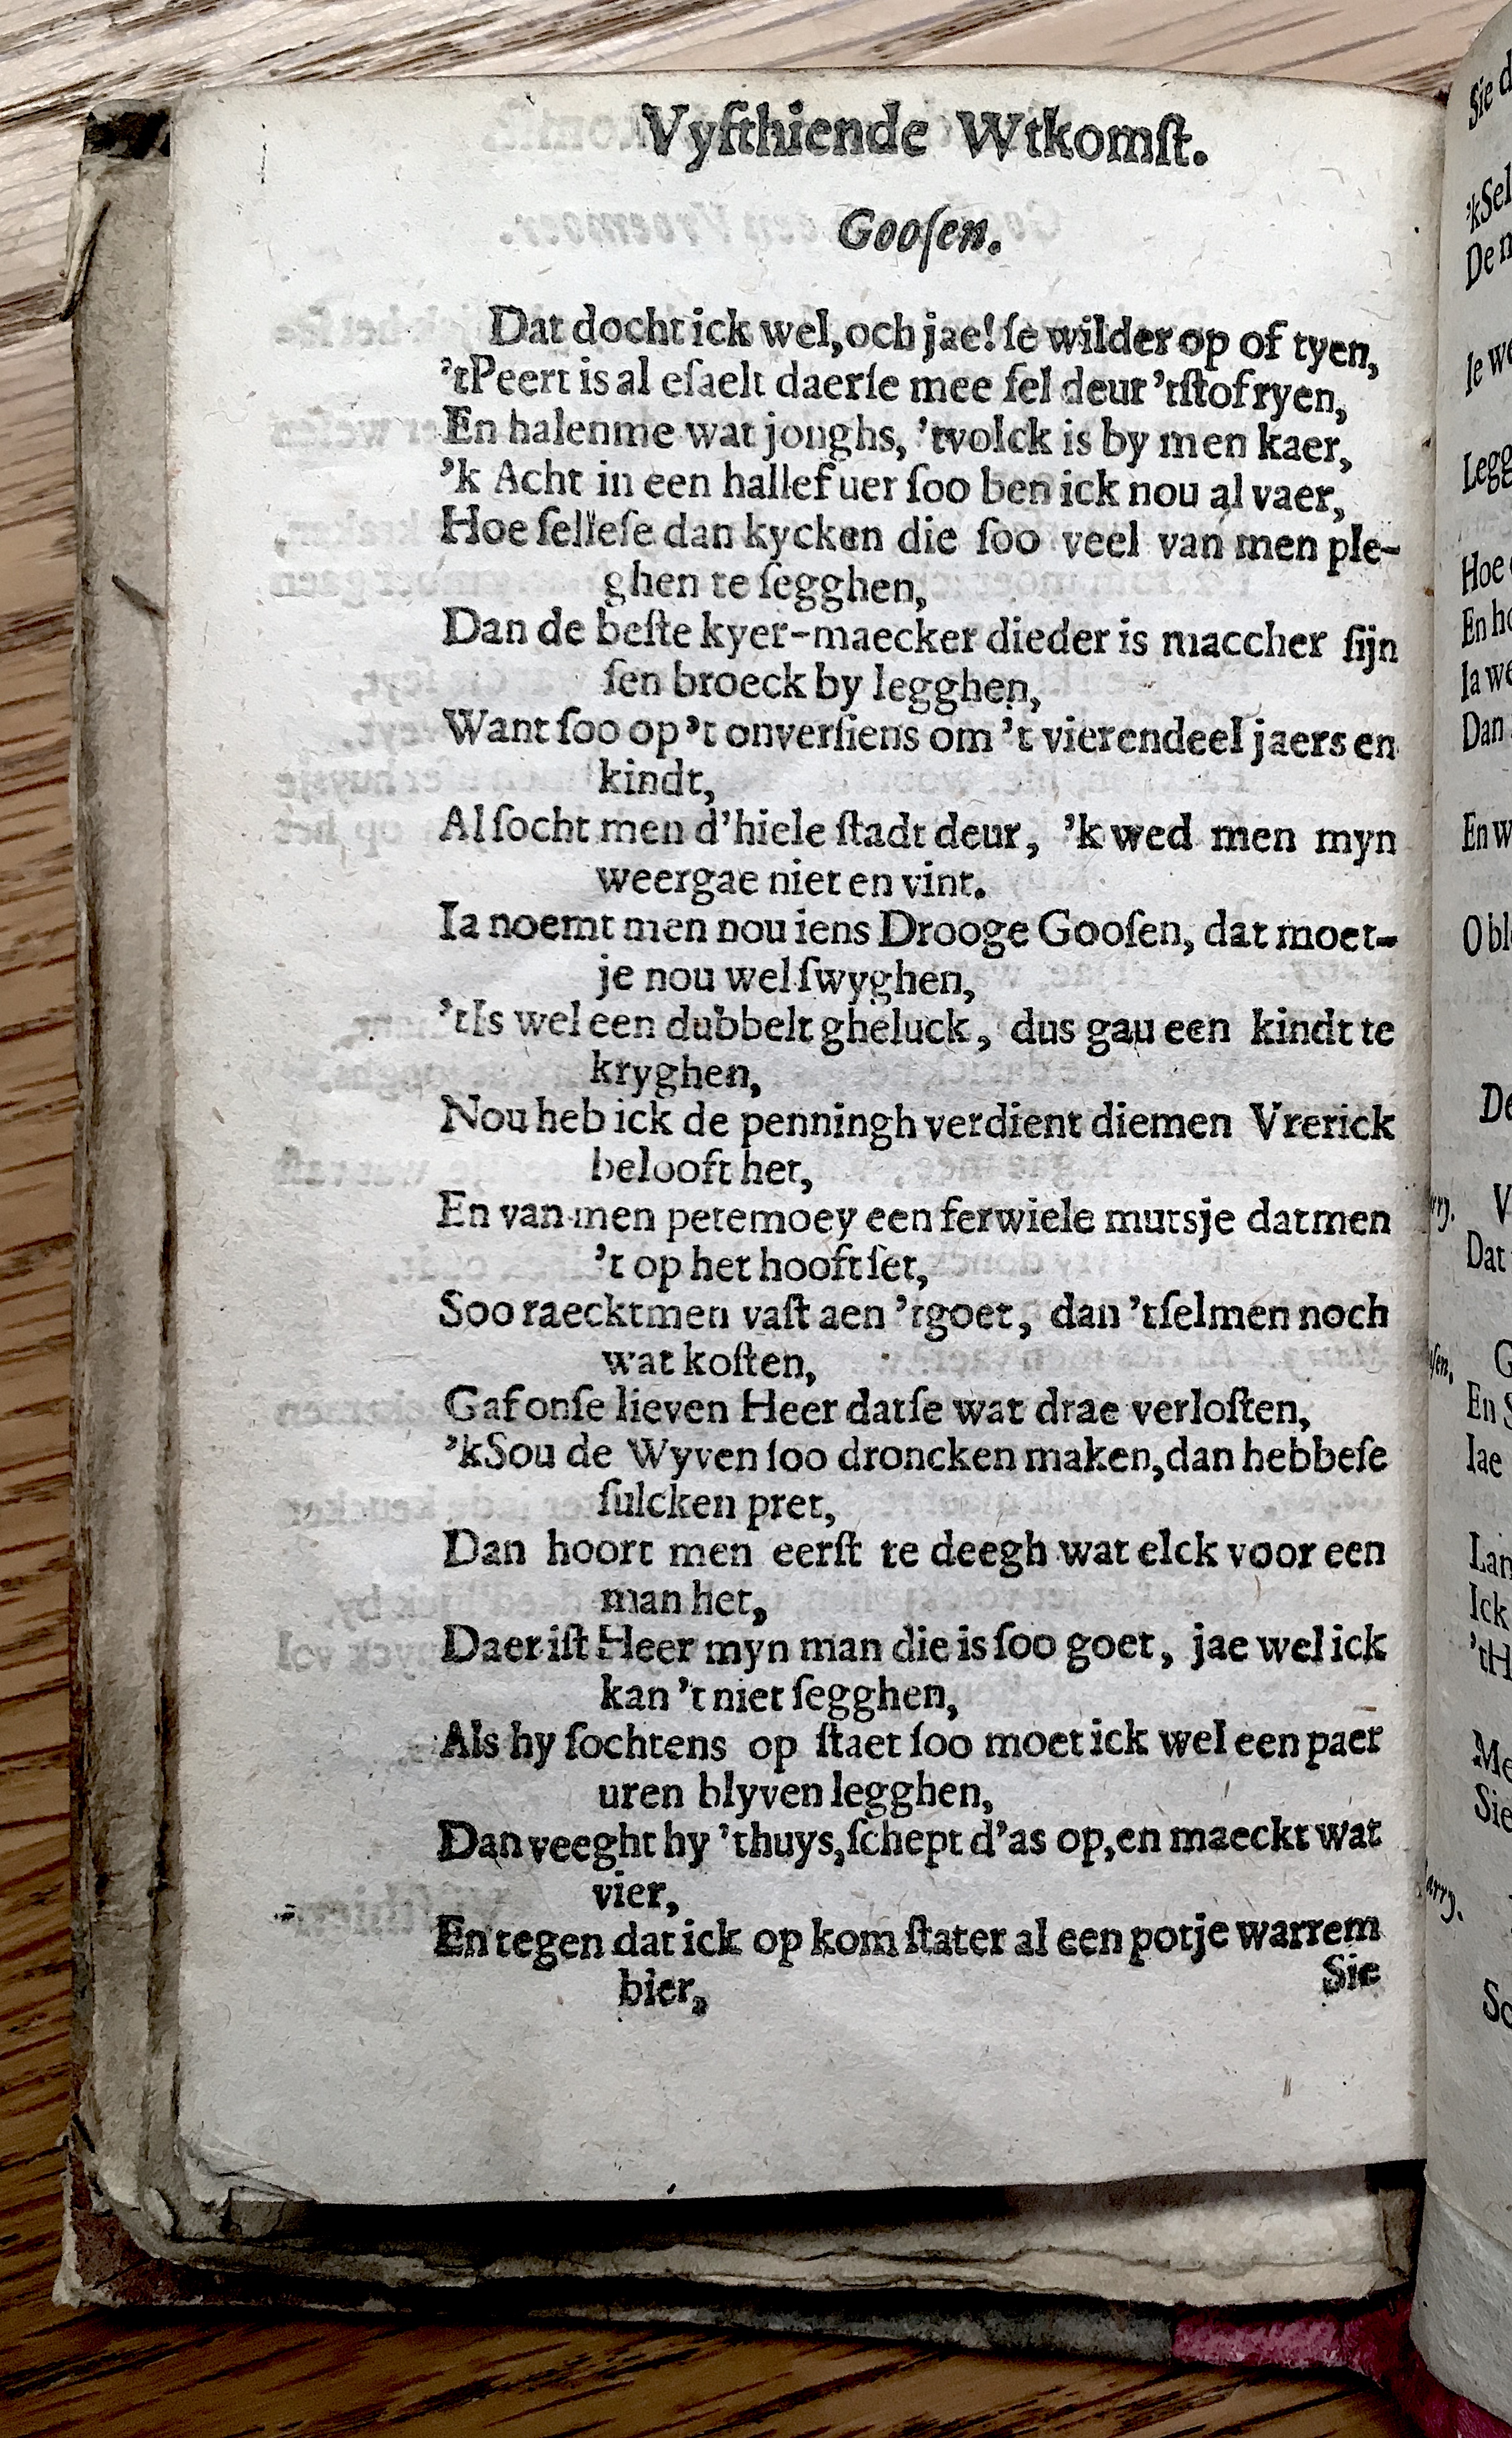 Vyfthiende Wtkomſt.
Gooſen.
Dat docht ick wel, och jae! ſe wilder op of tyen,
'tPeert is al eſaelt daerſe mee ſel deur 'tſtof ryen,
En halenme wat jonghs, 'tvolck is by men kaer,
'k Acht in een hallef uer ſoo ben ick nou al vaer,
Hoe ſelleſe dan kycken die ſoo veel van men ple-
ghen te ſegghen,
Dan de beſte kyer-maecker dieder is maccher ſijn
ſen broeck by legghen,
Want ſoo op 't onverſiens om 't vierendeel jaers en
kindt,
Al ſocht men d'hiele ſtadt deur, 'k wed men myn
weergae niet en vint.
Ia noemt men nou iens Drooge Gooſen, dat moet-
je nou wel ſwyghen,
'tIs wel een dubbelt gheluck, dus gau een kindt te
kryghen,
Nou heb ick de penningh verdient diemen Vrerick
belooft het,
En van men petemoey een ferwiele mutsje datmen
't op het hooft ſet,
Soo raecktmen vaſt aen 'tgoet, dan 'tſelmen noch
wat koſten,
Gaf onſe lieven Heer datſe wat drae verloſten,
'kSou de Wyven ſoo droncken maken, dan hebbeſe
ſulcken pret,
Dan hoort men eerſt te deegh wat elck voor een
man het,
Daer iſt Heer myn man die is ſoo goet, jae wel ick
kan 't niet ſegghen,
Als hy ſochtens op ſtaet ſoo moet ick wel een paer
uren blyven legghen,
Dan veeght hy 'thuys, ſchept d'as op, en maeckt wat
vier,
En tegen dat ick op kom ſtater al een potje warrem
bier,
Sie